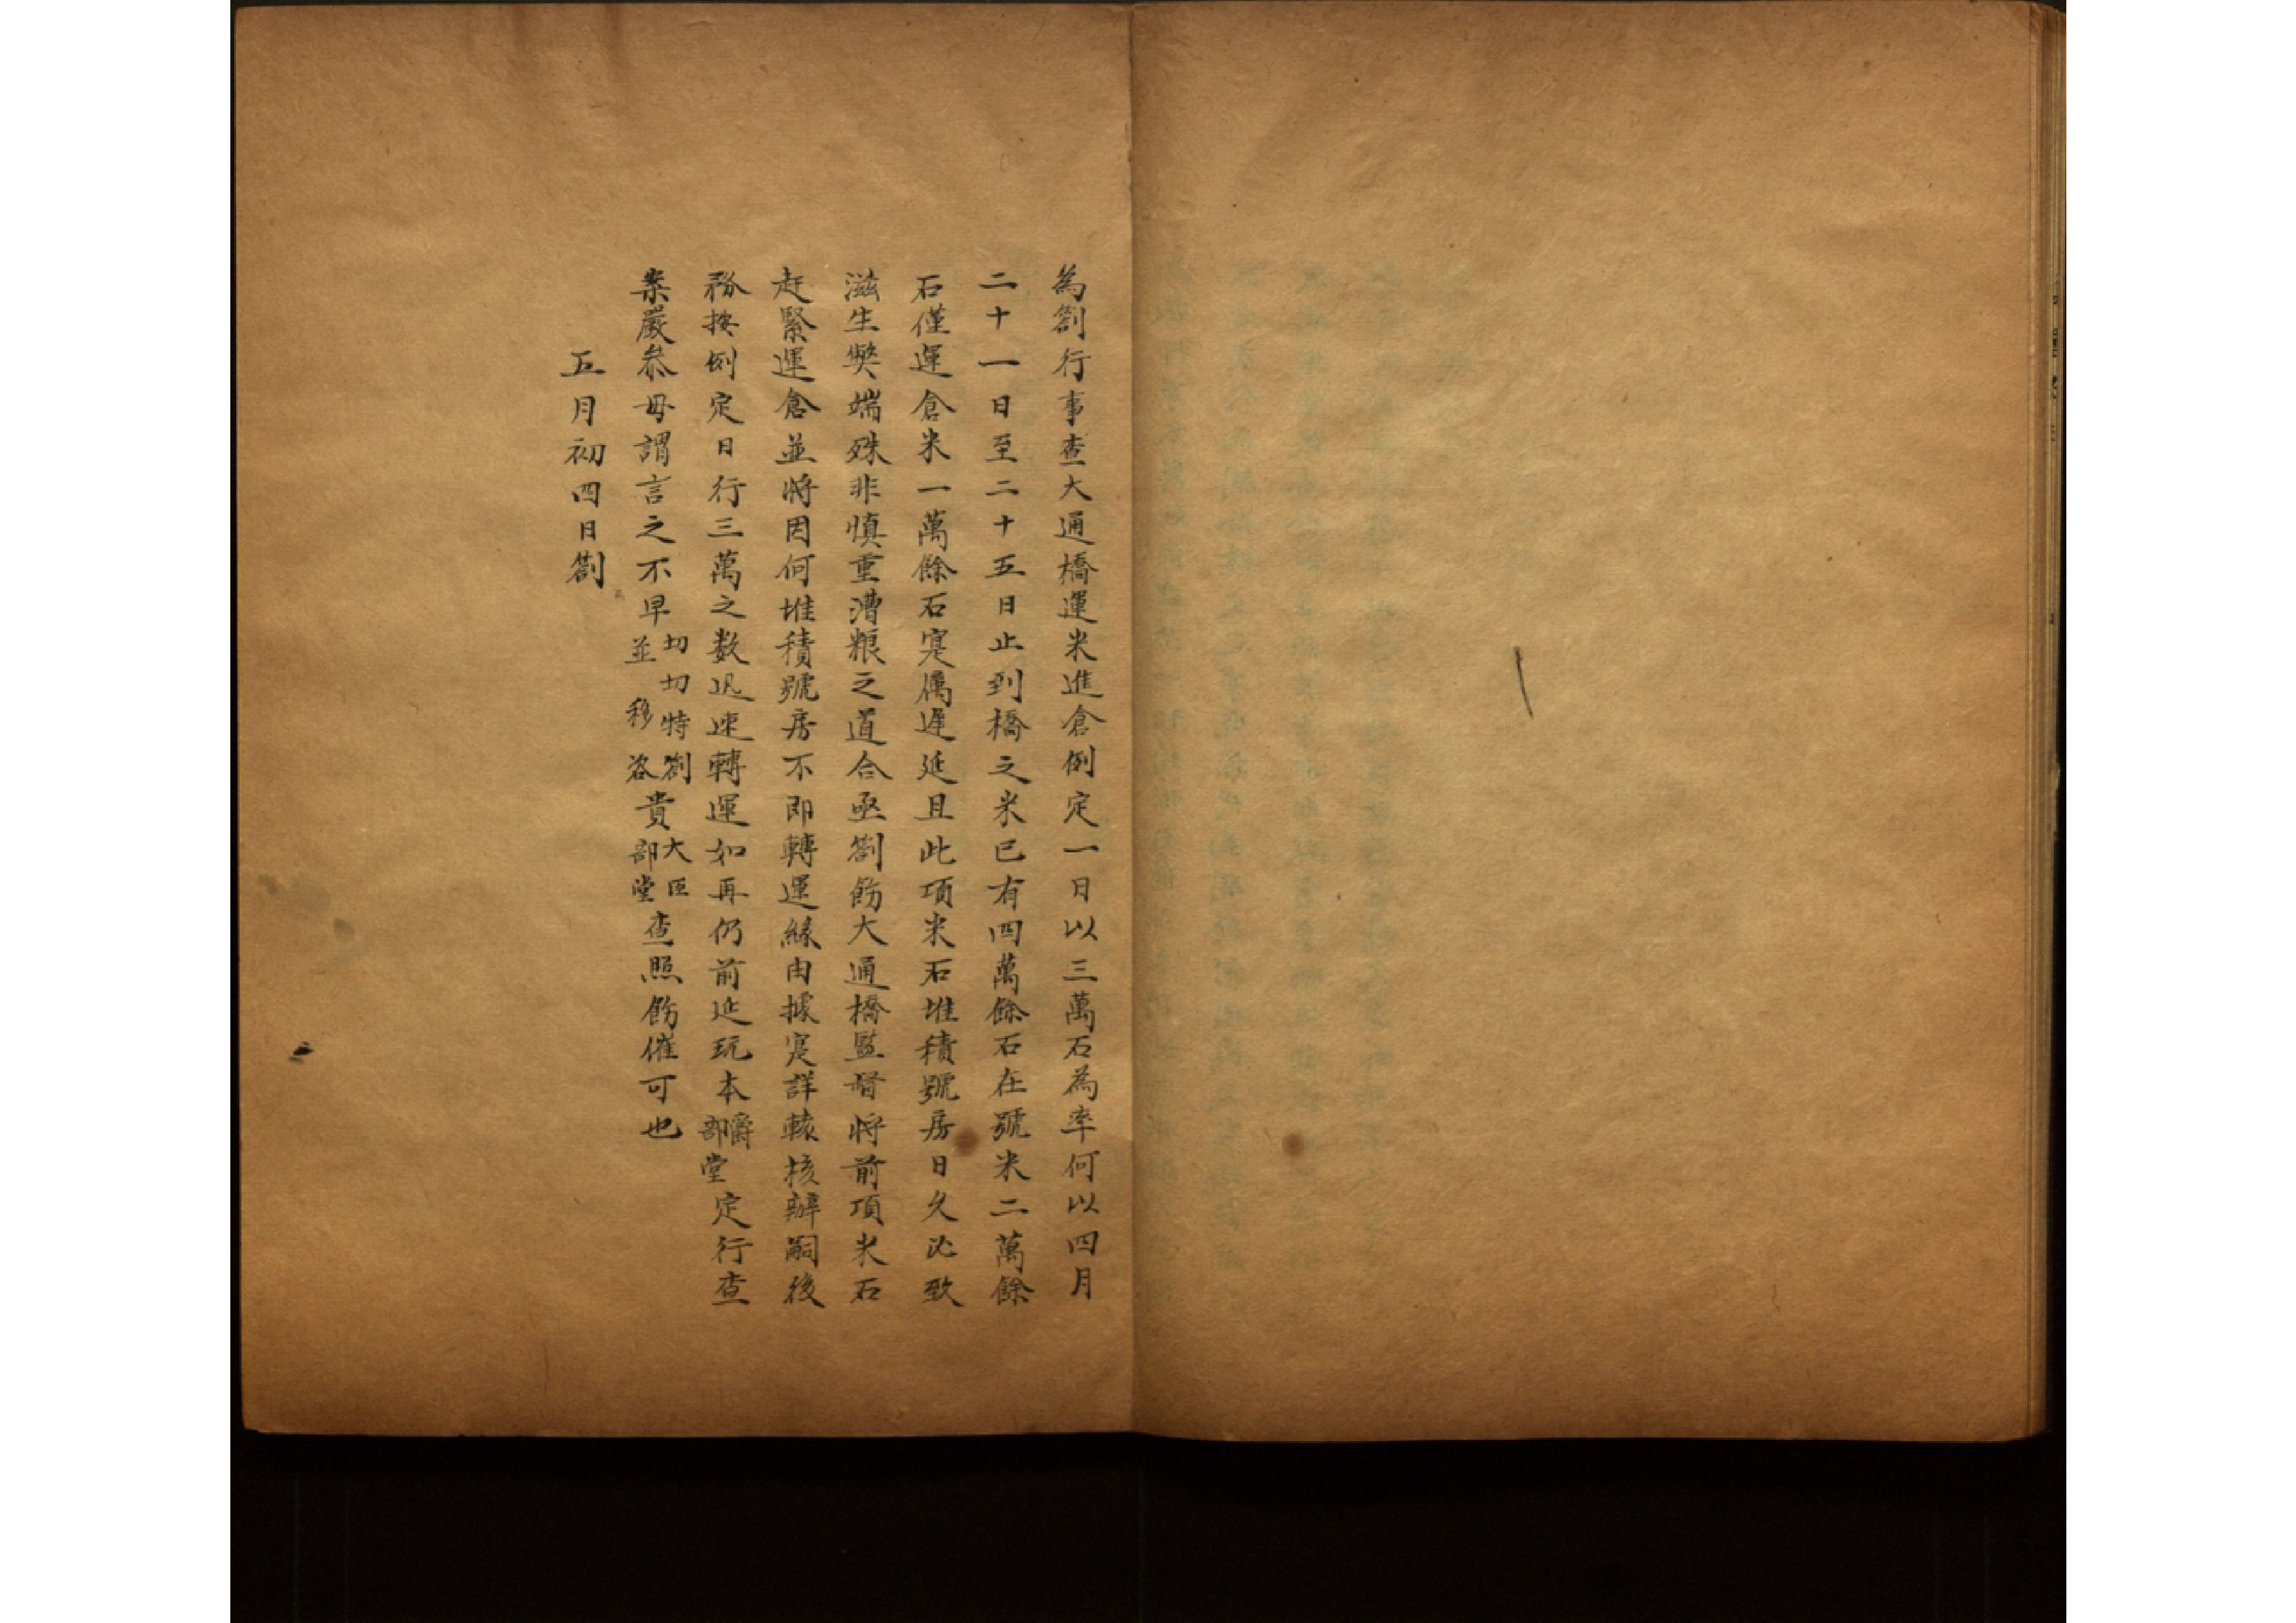 為劄行事查大通橋運米進倉例定一日以三萬石為率何以四月
二十一日至二十五日止到橋之米已有四萬餘石在號米二萬餘
石僅運倉米一萬餘石寔属遲延且此項米石堆積號房日久必致
滋生獘端殊非慎重漕粮之道合亟劄飭大通橋監督將前項米石
赶緊運倉並將因何堆積號房不即轉運緣由據寔詳核辦嗣後
務按例定日行三萬之数迅速轉運如再仍前延玩本爵部堂定行查
叅嚴叅毋謂言之不早切切特劄並移咨貴大臣部堂查照飭催可也
五月初四日劄